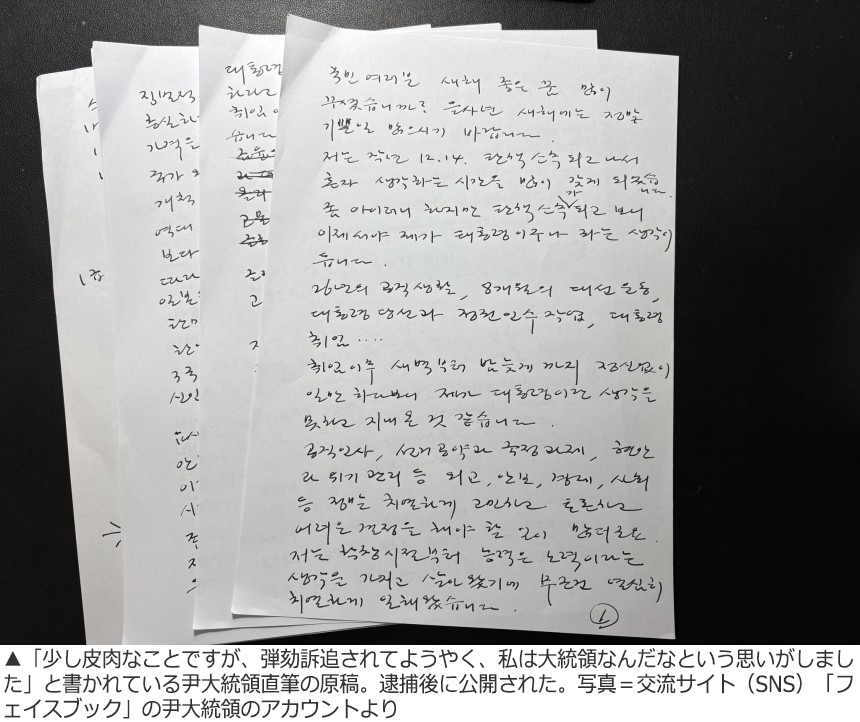 집필적
충실하
가격은
국가 
개혁
역대
보다
따라
일본
한미
한
대통령
하라고
취임
습니다
국민 여러분 새해 좋은 꿈 많이
꾸셨습니까? 을사년 새해에는 정말
기쁜일 많으시기 바랍니다.
저는 작년 12.14. 탄핵 소추 되고 나서
혼자 생각하는 시간을 많이 갖게 되었습니다.
좀 아이러니 하지만 탄핵 소추가 되고 보니
이제서야 제가 대통령이구나 하는 생각이
듭니다.
26년의 공직생활, 8개월의 대선 운동,
대통령 당선과 정권 인수 작업, 대통령
취임....
취임이후 새벽부터 밤늦게 까지 정신없이
일만 하다보니 제가 대통령이란 생각을
못하고 지내온 것 같습니다.
공직인사, 선거공약과 국정과제, 현안
과 위기 관리 등 외교, 안보, 경제, 사회
등 정말 치열하게 고민하고 토론하고
어려운 결정을 해야 할 일이 많더군요.
저는 학창시절부터 능력은 노력이라는
생각을 가지고 살아왔기에 무조건 열심히
치열하게 일해왔습니다.
①
▲「少し皮肉なことですが、弾劾訴追されてようやく、私は大統領なんだなという思いがしまし
た」と書かれている尹大統領直筆の原稿。逮捕後に公開された。写真＝交流サイト（SNS）「フ
ェイスブック」の尹大統領のアカウントより